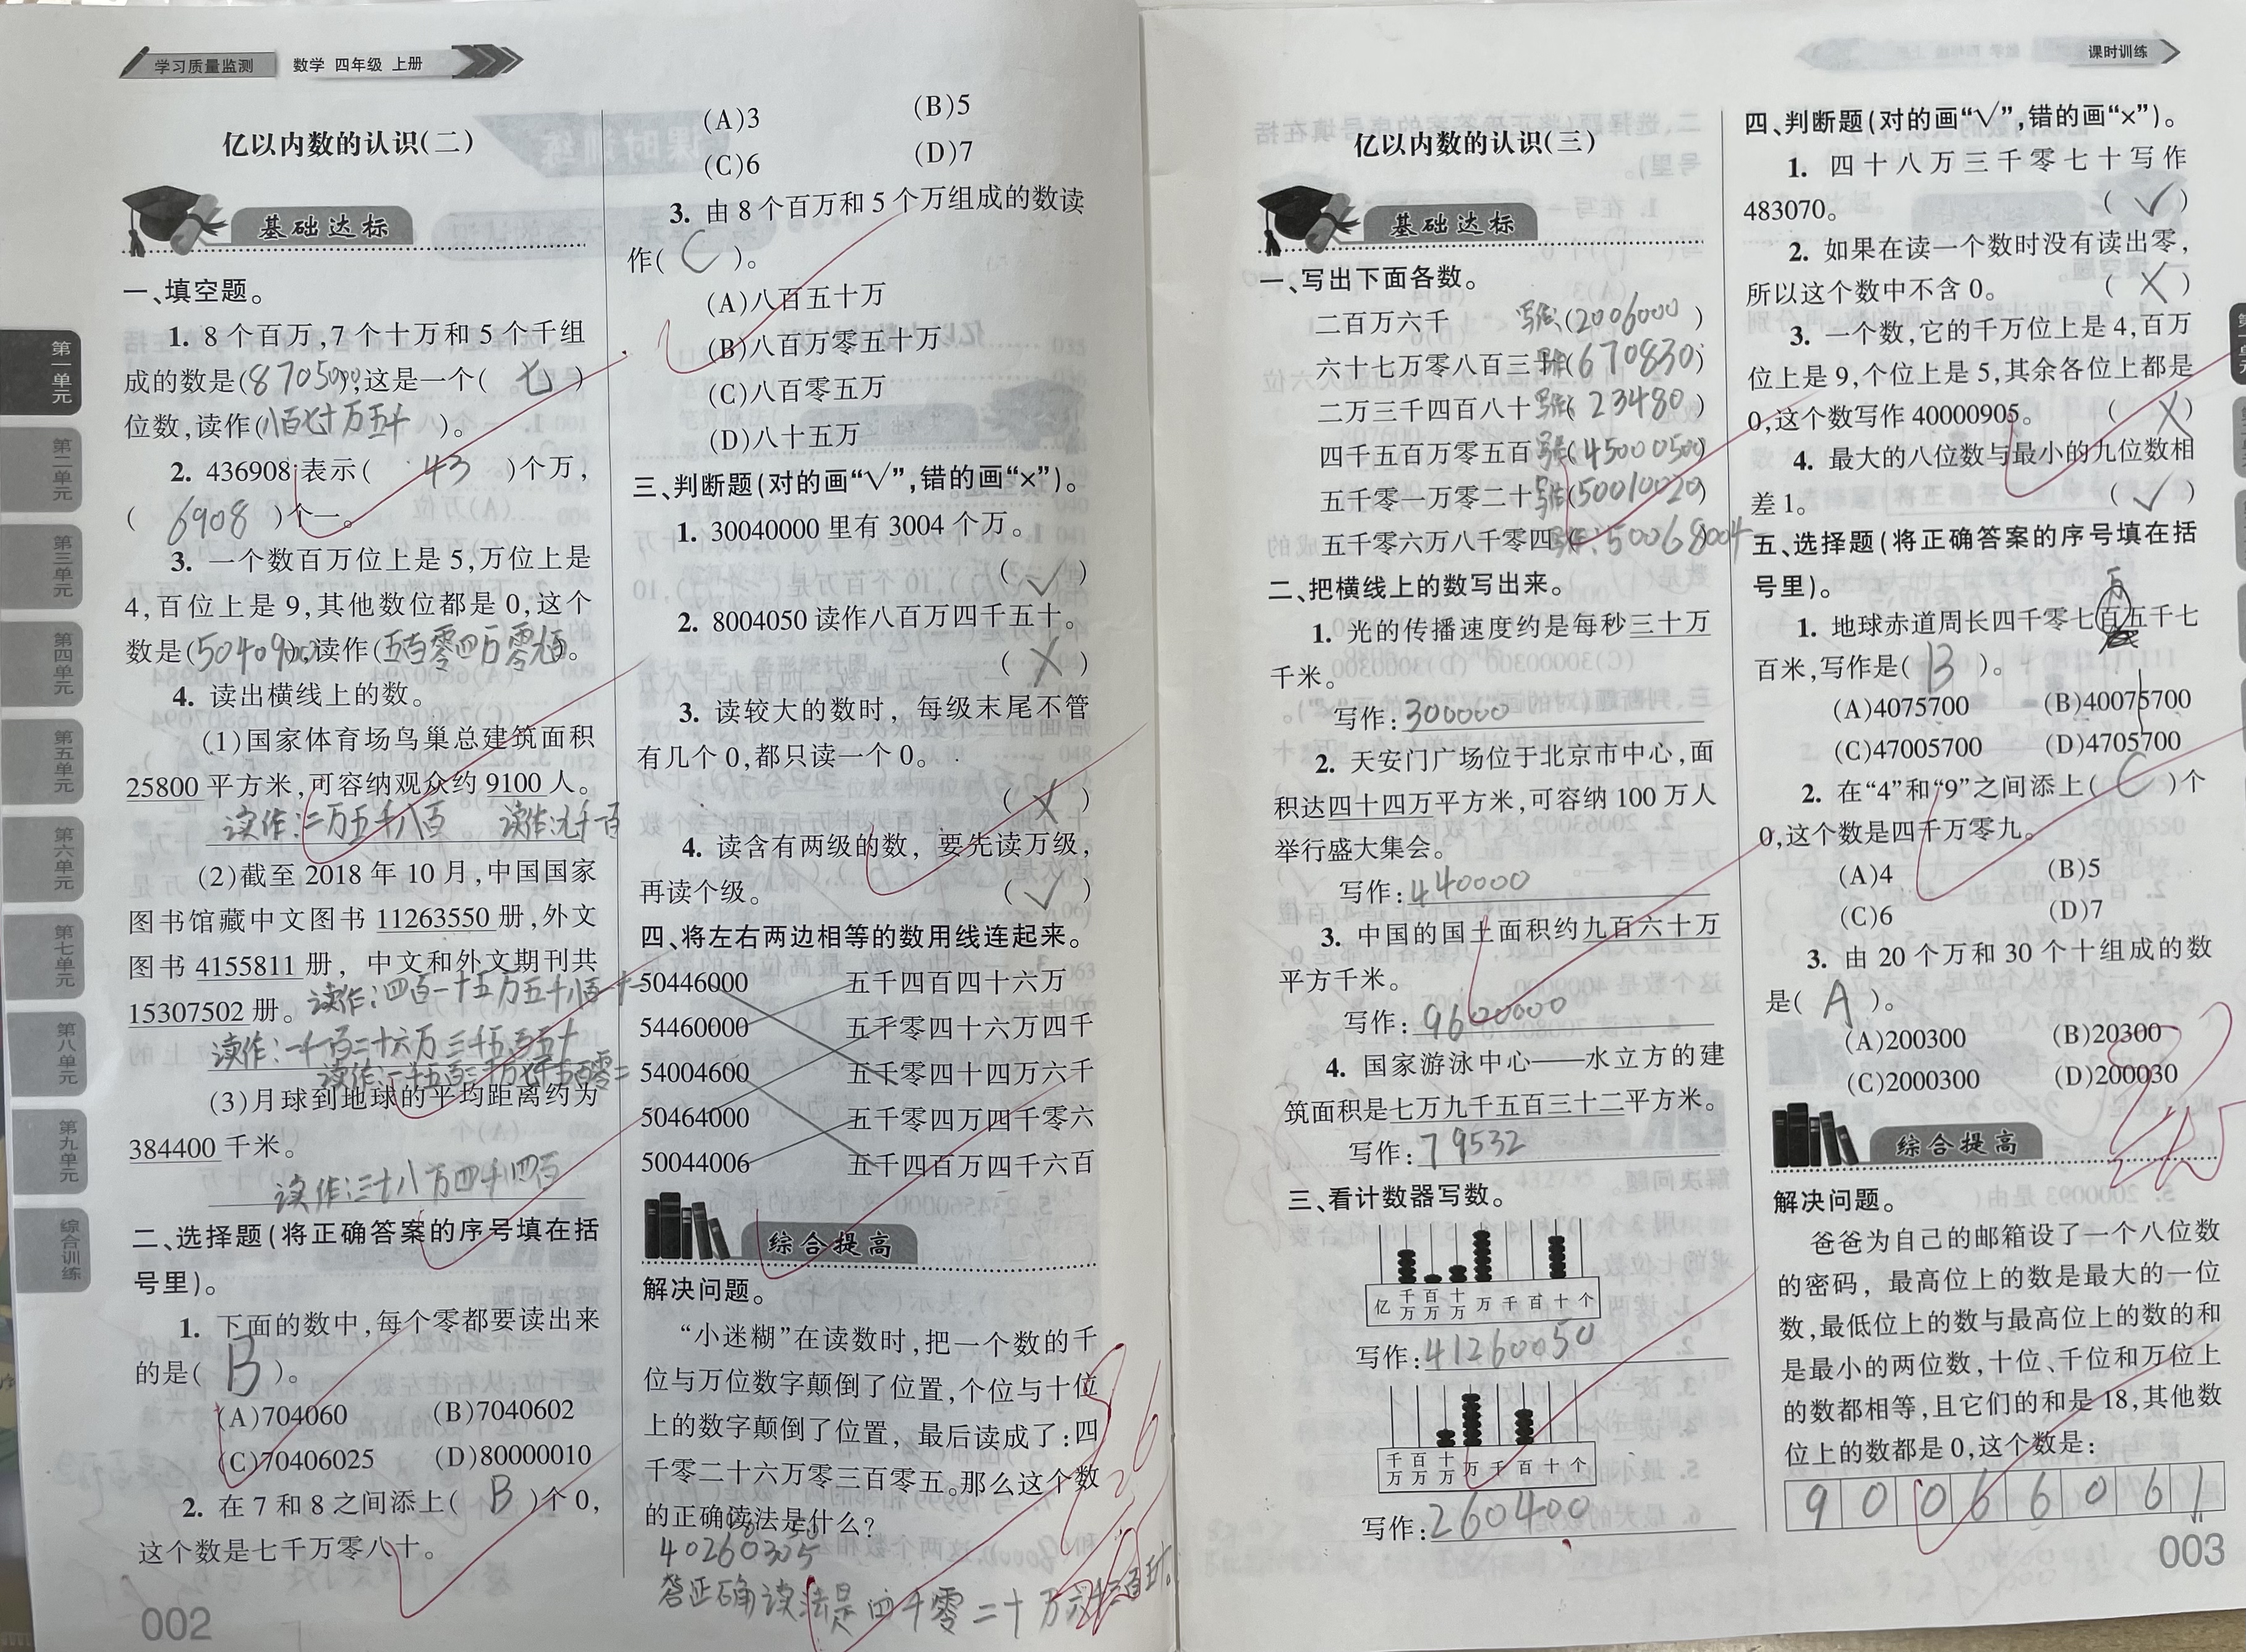 学习质量监测 数学 四年级 上册
亿以内数的认识(二)
基础达标
一、填空题。
1. 8个百万,7个十万和5个千组
成的数是(8705000),这是一个( 七 )
位数,读作(八百七十万五千)。
2. 436908表示( 43 )个万,
( 6908 )个一。
3. 一个数百万位上是5,万位上是
4,百位上是9,其他数位都是0,这个
数是(5040900),读作(五百零四万零九百)。
4. 读出横线上的数。
(1)国家体育场鸟巢总建筑面积
25800平方米,可容纳观众约9100人。
读作:二万五千八百 读作:九千一百
(2)截至2018年10月,中国国家
图书馆藏中文图书11263550册,外文
图书4155811册,中文和外文期刊共
15307502册。读作:四百一十五万五千八百一十一
读作:一千一百二十六万三千五百五十
读作:一千五百三十万七千五百零二
(3)月球到地球的平均距离约为
384400千米。
读作:三十八万四千四百
二、选择题(将正确答案的序号填在括
号里)。
1. 下面的数中,每个零都要读出来
的是( B )。
(A)704060 (B)7040602
(C)70406025 (D)80000010
2. 在7和8之间添上( B )个0,
这个数是七千万零八十。
002
(A)3 (B)5
(C)6 (D)7
3. 由8个百万和5个万组成的数读
作( C )。
(A)八百五十万
(B)八百万零五十万
(C)八百零五万
(D)八十五万
三、判断题(对的画“√”,错的画“×”)。
1. 30040000里有3004个万。
( √ )
2. 8004050读作八百万四千五十。
( × )
3. 读较大的数时,每级末尾不管
有几个0,都只读一个0。
( × )
4. 读含有两级的数,要先读万级,
再读个级。 ( √ )
四、将左右两边相等的数用线连起来。
50446000 五千四百四十六万
54460000 五千零四十六万四千
54004600 五千零四十四万六千
50464000 五千零四万四千零六
50044006 五千四百万四千六百
综合提高
解决问题。
“小迷糊”在读数时,把一个数的千
位与万位数字颠倒了位置,个位与十位
上的数字颠倒了位置,最后读成了:四
千零二十六万零三百零五。那么这个数
的正确读法是什么?
40260305
答正确读法是四千零二十万六千三百五十。
课时训练
亿以内数的认识(三)
基础达标
一、写出下面各数。
二百万六千 写作:(2006000)
六十七万零八百三十 写作(670830)
二万三千四百八十 写作(23480)
四千五百万零五百 写作(45000500)
五千零一万零二十 写作(50010020)
五千零六万八千零四 写作:50068004
二、把横线上的数写出来。
1. 光的传播速度约是每秒三十万
千米。
写作:300000
2. 天安门广场位于北京市中心,面
积达四十四万平方米,可容纳100万人
举行盛大集会。
写作:440000
3. 中国的国土面积约九百六十万
平方千米。
写作:9600000
4. 国家游泳中心——水立方的建
筑面积是七万九千五百三十二平方米。
写作:79532
三、看计数器写数。
亿 千万 百万 十万 万 千 百 十 个
写作:41260050
千万 百万 十万 万 千 百 十 个
写作:260400
四、判断题(对的画“√”,错的画“×”)。
1. 四十八万三千零七十写作
483070。 ( √ )
2. 如果在读一个数时没有读出零,
所以这个数中不含0。 ( × )
3. 一个数,它的千万位上是4,百万
位上是9,个位上是5,其余各位上都是
0,这个数写作40000905。 ( × )
4. 最大的八位数与最小的九位数相
差1。 ( √ )
五、选择题(将正确答案的序号填在括
号里)。
万
1. 地球赤道周长四千零七百五千七
百米,写作是( B )。
(A)4075700 (B)40075700
(C)47005700 (D)4705700
2. 在“4”和“9”之间添上( C )个
0,这个数是四千万零九。
(A)4 (B)5
(C)6 (D)7
3. 由20个万和30个十组成的数
是( A )。
(A)200300 (B)20300
(C)2000300 (D)200030
综合提高
解决问题。
爸爸为自己的邮箱设了一个八位数
的密码,最高位上的数是最大的一位
数,最低位上的数与最高位上的数的和
是最小的两位数,十位、千位和万位上
的数都相等,且它们的和是18,其他数
位上的数都是0,这个数是:
9 0 0 6 6 0 6 1
003
第一单元
第二单元
第三单元
第四单元
第五单元
第六单元
第七单元
第八单元
第九单元
综合训练